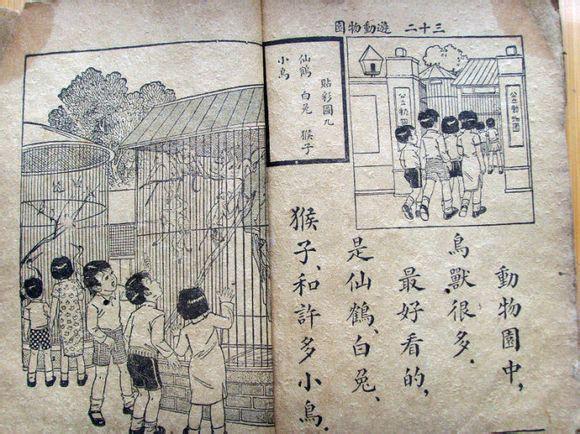 三十二 遊動物園
公立動物園
公立動
動物園中，
鳥獸很多．
最好看的，
是仙鶴、白兔、
猴子、和許多小鳥．
貼彩圖九
仙鶴 白兔 猴子
小鳥